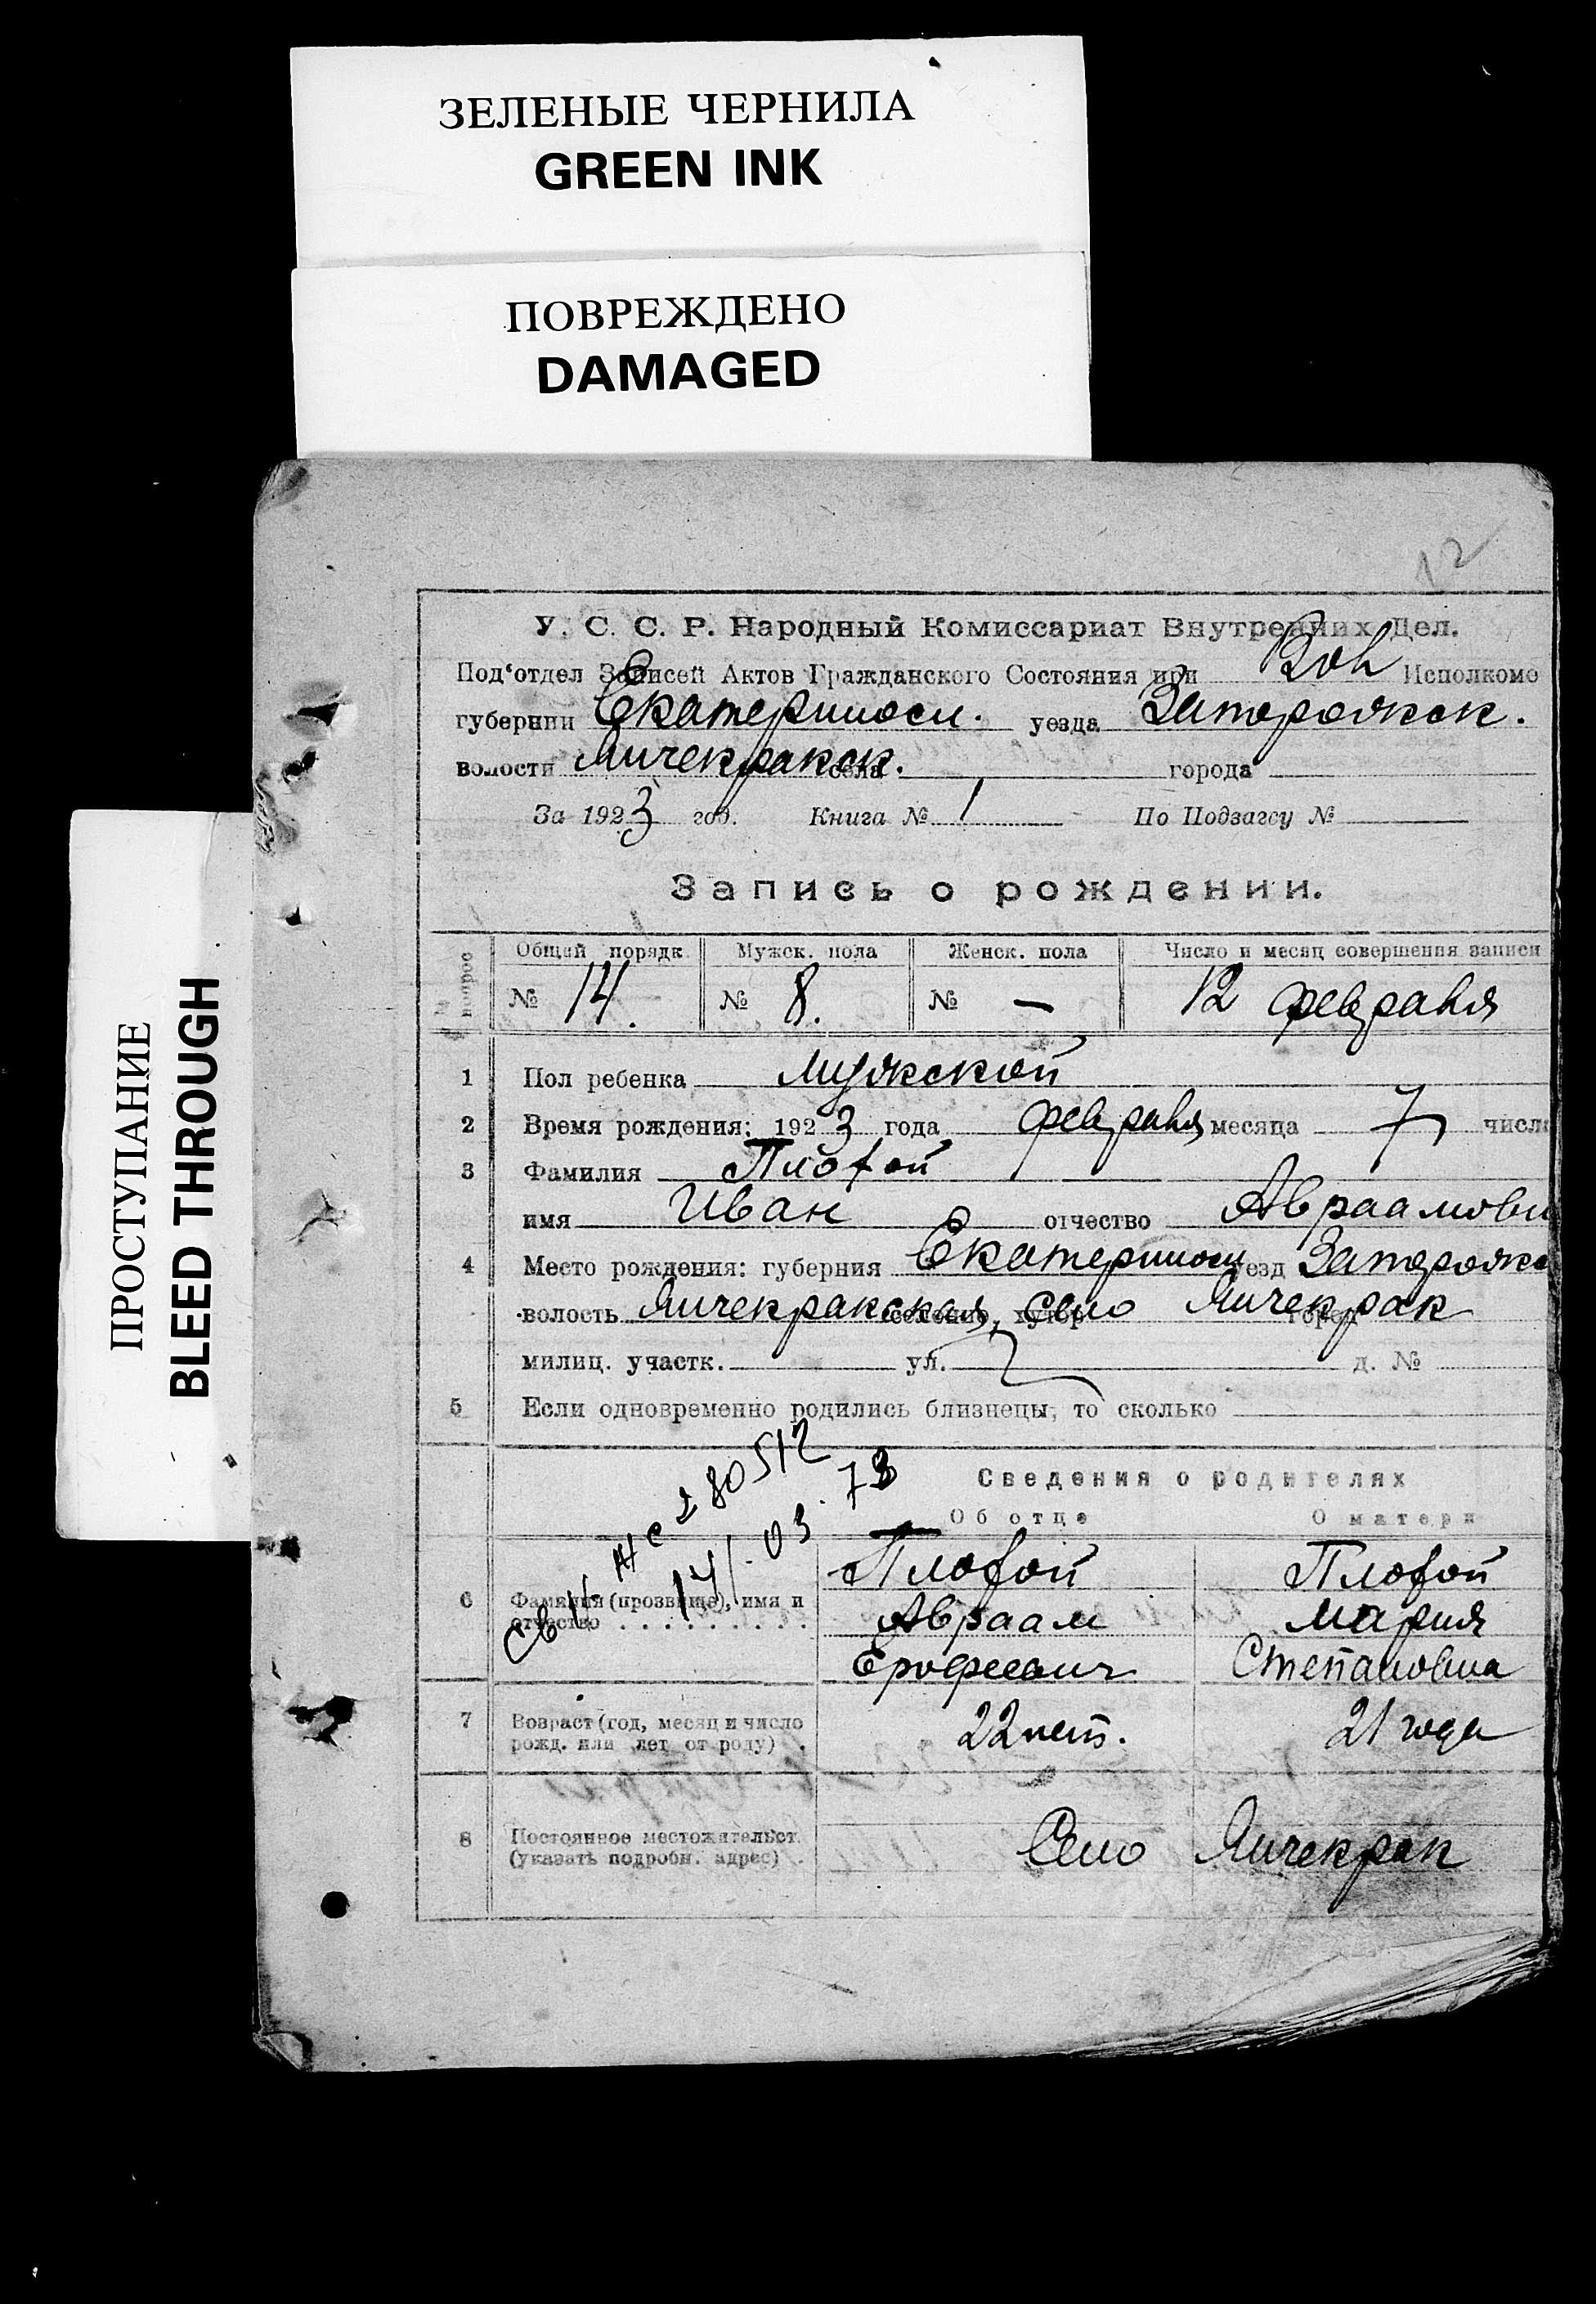 ЗЕЛЕНЫЕ ЧЕРНИЛА
GREEN INK
ПОВРЕЖДЕНО
DAMAGED
ПРОСТУПАНИЕ
BLEED THROUGH
12
У. С. С. Р. Народный Комиссариат Внутренних Дел.
Под‘отдел Записей Актов Гражданского Состояния при Вол Исполкоме
губернии Екатериносл. уезда Запорожск.
волости Янчекракск. села города
За 1923 год. Книга № 1 По Подзагсу №
Запись о рождении.
№ вопрос Общей порядк. Мужск. пола Женск. пола Число и месяц совершения записи
№ 14. № 8. № — 12 февраля
1 Пол ребенка мужской
2 Время рождения: 1923 года февраля месяца 7 числа
3 Фамилия
имя Иван отчество Авраамови
4 Место рождения: губерния Екатериносл уезд Запорожс
волость Янчекракская, селение, хутор Село Янчекрак город
милиц. участк. ул. д. №
5 Если одновременно родились близнецы, то сколько
Св II ЖС 280512
14.03.73
Сведения о родителях
Об отце О матери
6 Фамилия (прозвище), имя и отчество
Авраам Мария
Ерофеевич Степановна
7 Возраст (год, месяц и число рожд. или лет от роду) 22 лет. 21 года
8 Постоянное местожительст. (указать подробн. адрес) Село Янчекрак